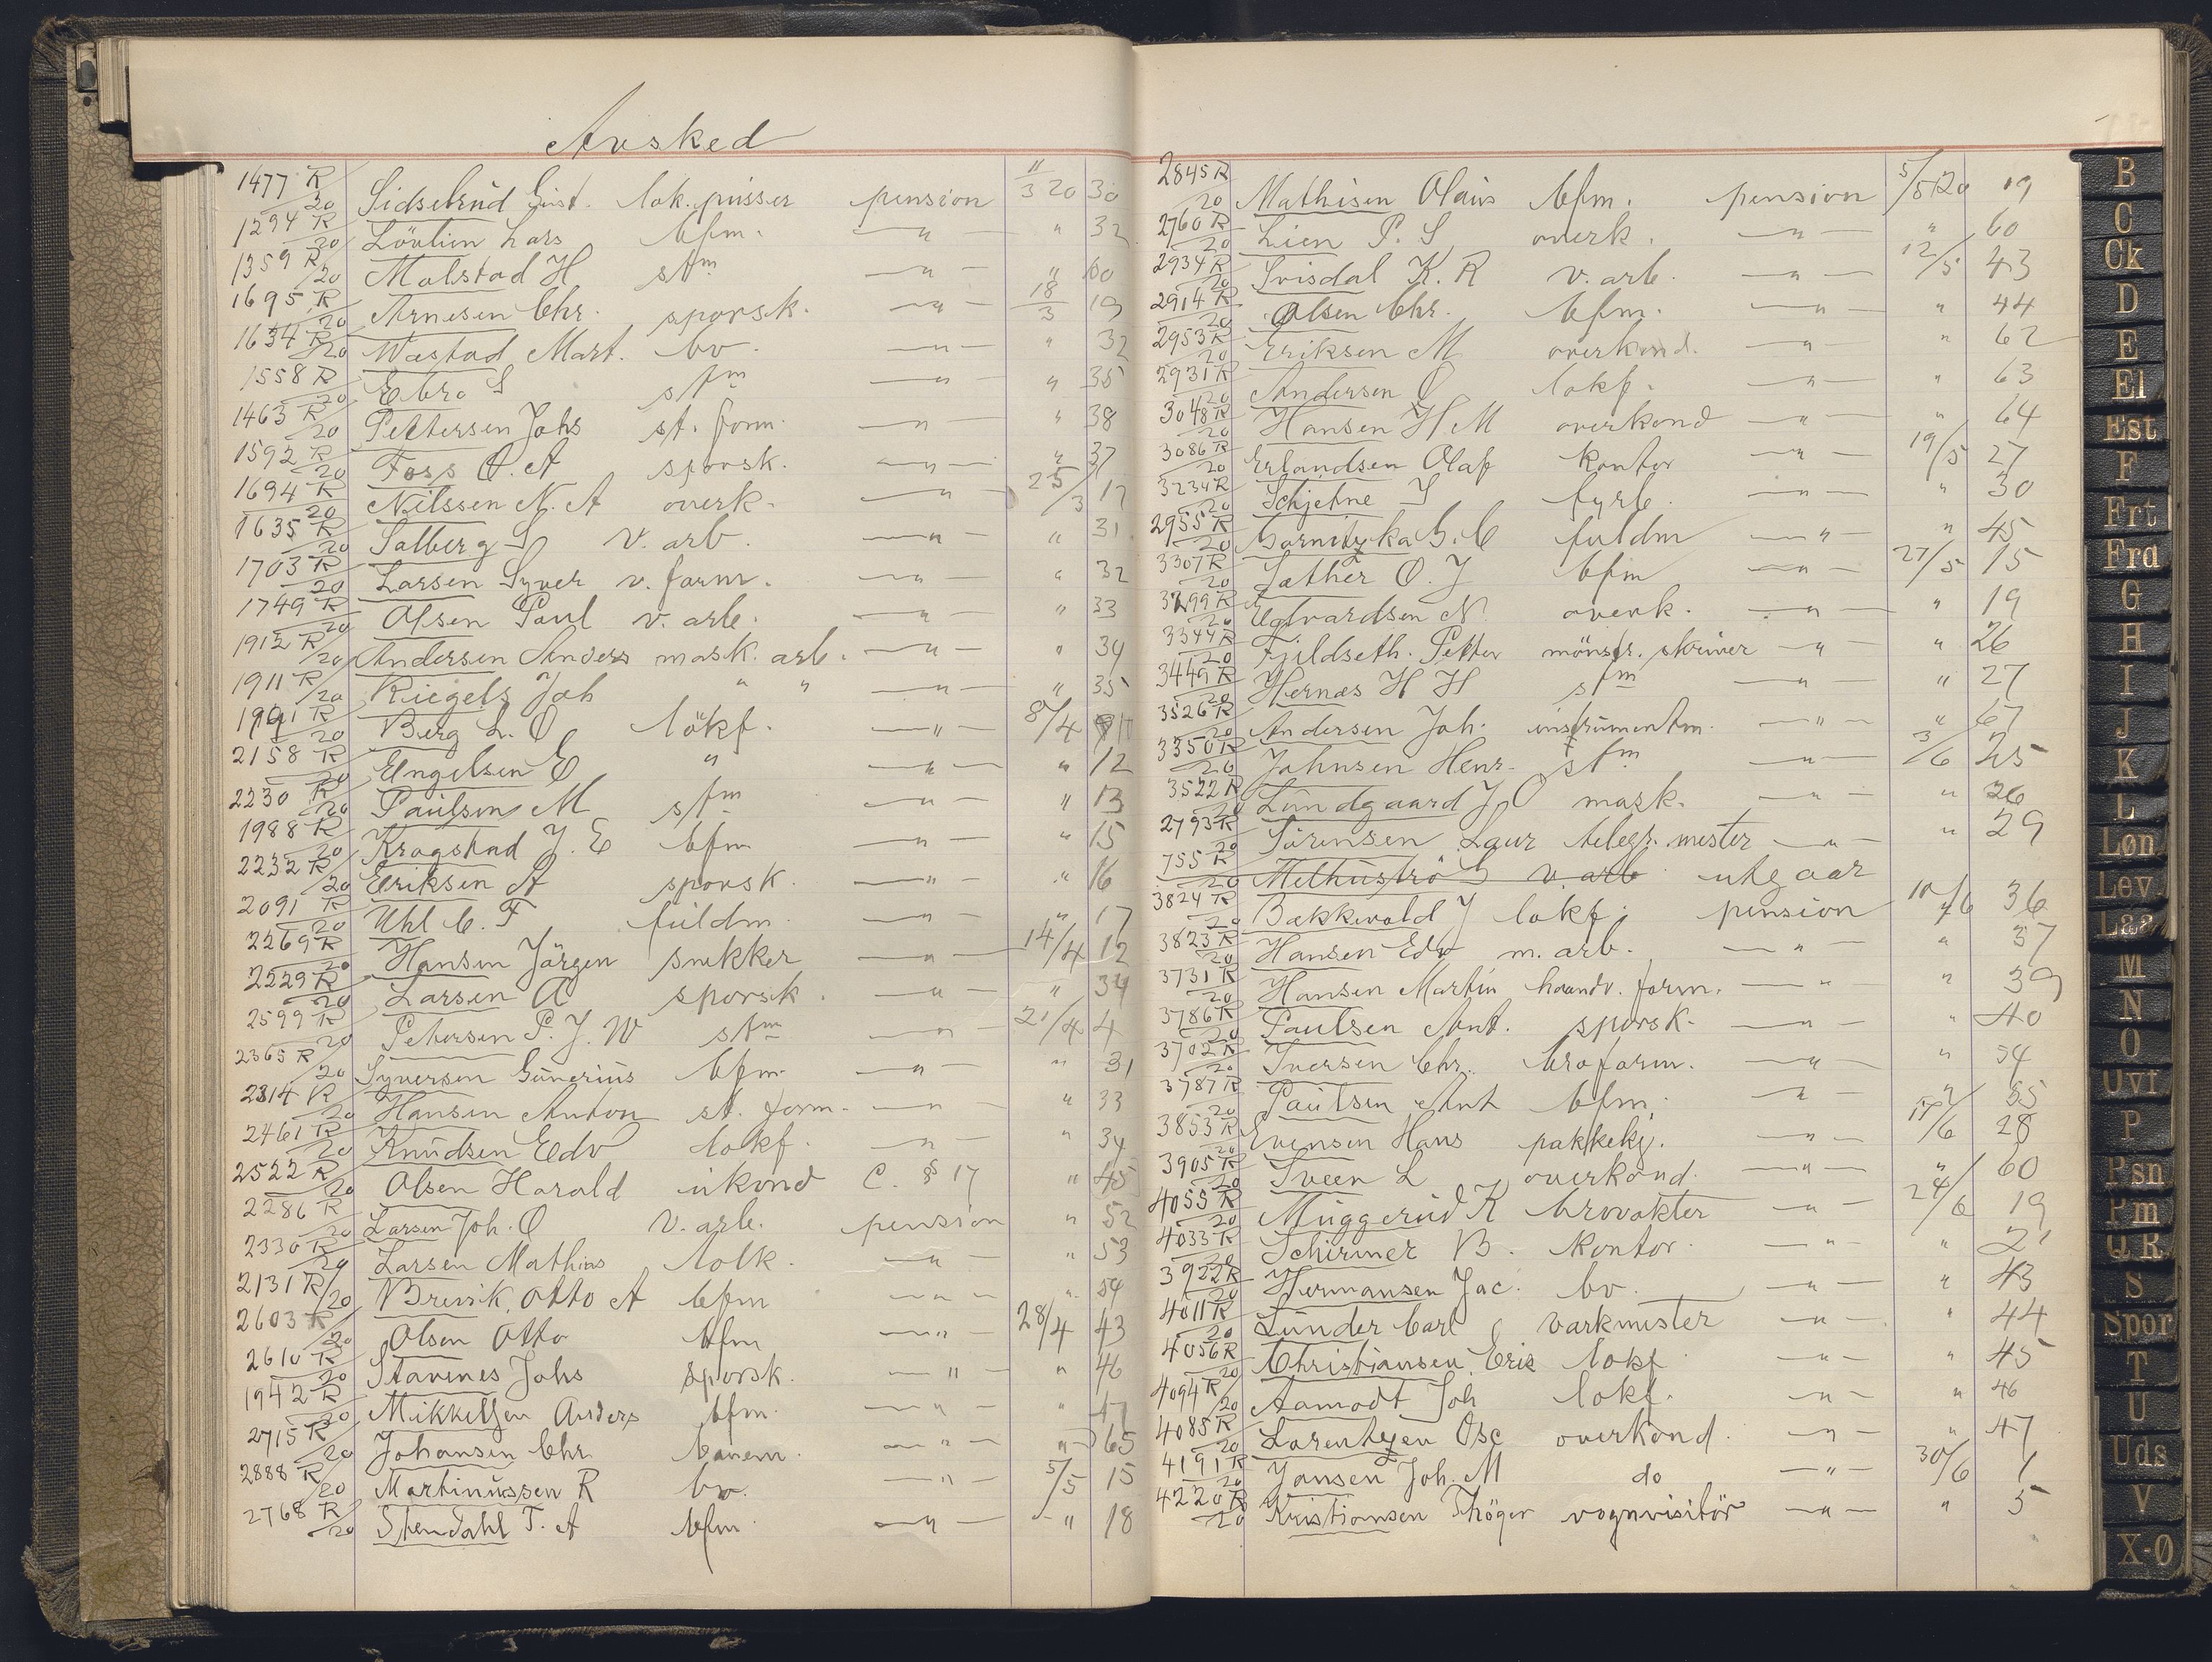 Avsked
1477 R/20 Sidsebrud Gust. lok. pusser pension 11/3 20 30
1294 R/20 Lövlien Lars bfm. —"— " 32
1359 R/20 Malstad H stm —"— " 60
1695 R/20 Arnesen Chr. sporsk. —"— 18/3 19
1634 R/20 Wæstad Mart. bv. —"— " 32
1558 R/20 Ebro S stm —"— " 35
1463 R/20 Pettersen Johs st. form. —"— " 38
1592 R/20 Foss O. A sporsk. —"— " 37
1694 R/20 Nilssen N. A overk. —"— 25/3 17
1635 R/20 Salberg S v. arb. —"— " 31
1703 R/20 Larsen Syver v. form. —"— " 32
1749 R/20 Olsen Paul v. arb. —"— " 33
1912 R/20 Andersen Anders mask. arb. —"— " 34
1911 R/20 Riegels Joh " " —"— " 35
R/20 Berg L. O lokf. —"— 8/4 11
2158 R/20 Engelsen E " —"— " 12
2230 R/20 Paulsen M stm —"— " 13
1988 R/20 Krogstad J. E bfm —"— " 15
2232 R/20 Eriksen A sporsk. —"— " 16
2091 R/20 Uhl C. F fuldm. —"— " 17
2269 R/20 Hansen Jörgen snekker —"— 14/4 12
2529 R/20 Larsen A sporsk. —"— " 34
2599 R/20 Petersen P. J. W stm —"— 21/4 4
2365 R/20 Syversen Gunerius bfm. —"— " 31
2314 R/20 Hansen Anton st. form. —"— " 33
2461 R/20 Knudsen Edv lokf. —"— " 34
2522 R/20 Olsen Harald ukond C. § 17 " 45
2286 R/20 Larsen Joh. O v. arb. pension " 52
2330 R/20 Larsen Mathias tolk. —"— " 53
2131 R/20 Brevik, Otto A bfm —"— " 54
2603 R/20 Olsen Otto bfm —"— 28/4 43
2610 R/20 Stavnes Johs sporsk. —"— " 46
1942 R/20 Mikkelsen Anders bfm. —"— " 47
2715 R/20 Johansen Chr. banem. —"— " 65
2888 R/20 Martinussen R bv. —"— 5/5 15
2768 R/20 Stendahl T. A bfm —"— " 18
2845 R/20 Mathisen Olaus bfm. pension 5/5 20 19
2760 R/20 Lien P. S overk. —"— " 60
2934 R/20 Svisdal K. R v. arb. —"— 12/5 43
2914 R/20 Olsen Chr. bfm. —"— " 44
2953 R/20 Eriksen M overkond. —"— " 62
2931 R/20 Andersen O lokf. —"— " 63
3048 R/20 Hansen H M overkond —"— " 64
3086 R/20 Erlandsen Olaf kontor —"— 19/5 27
3234 R/20 Schjetne S fyrb. —"— " 30
2955 R/20 Gornitzka G. C fuldm —"— " 45
3307 R/20 Sather O. J bfm —"— 27/5 15
3299 R/20 Edvardsen N. overk. —"— " 19
3344 R/20 Fjeldseth. Petter mönstr. skriver —"— " 26
3449 R/20 Hernæs H H stm —"— " 27
3526 R/20 Andersen Joh. instrumentm. —"— " 67
3350 R/20 Johnsen Henr. stm —"— 3/6 25
3522 R/20 Lundgaard J O mask. —"— " 26
2793 R/20 Sörensen Laur telegr. mester —"— " 29
755 R/20 Melhuströ S v. arb utgaar
3824 R/20 Bækkevold J lokf. pension 10/6 36
3823 R/20 Hansen Edv m. arb. —"— " 37
3731 R/20 Hansen Martin haandv. form. —"— " 39
3786 R/20 Paulsen Ant. sporsk. —"— " 40
3702 R/20 Iversen Chr. broform. —"— " 54
3787 R/20 Paulsen Ant bfm. —"— " 55
3853 R/20 Evensen Hans pakkekj. —"— 17/6 28
3905 R/20 Sveen L overkond. —"— " 60
4055 R/20 Muggerud K brovokter —"— 24/6 19
4033 R/20 Schirmer B. kontor. —"— " 21
3922 R/20 Hermansen Jac. bv. —"— " 43
4011 R/20 Lunder Carl varkmester —"— " 44
4056 R/20 Christiansen Eric lokf —"— " 45
4094 R/20 Aamodt Joh lokf. —"— " 46
4085 R/20 Lorentzen Osc overkond. —"— " 47
4191 R/20 Jansen Joh. M do —"— 30/6 1
4220 R/20 Kristiansen Thöger vognvisitör —"— " 5
B
C
Ck
D
E
El
Est
F
Frt
Frd
G
H
I
J
K
L
Løn
Lev.
Laa
M
N
O
Ovf
P
Psn
Pm
Q R
S
Spor
T
U
Uds
V
X-Ø